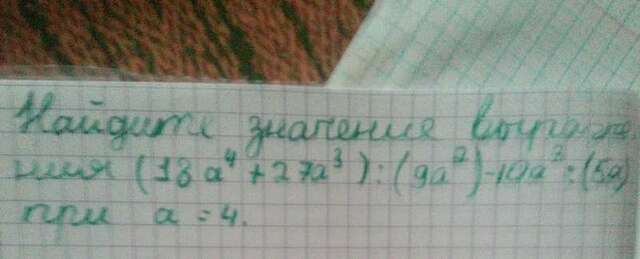 Найдите значение выраже
ния (18a⁴ + 27a³) : (9a²) - 10a³ : (5a)
при a = 4.